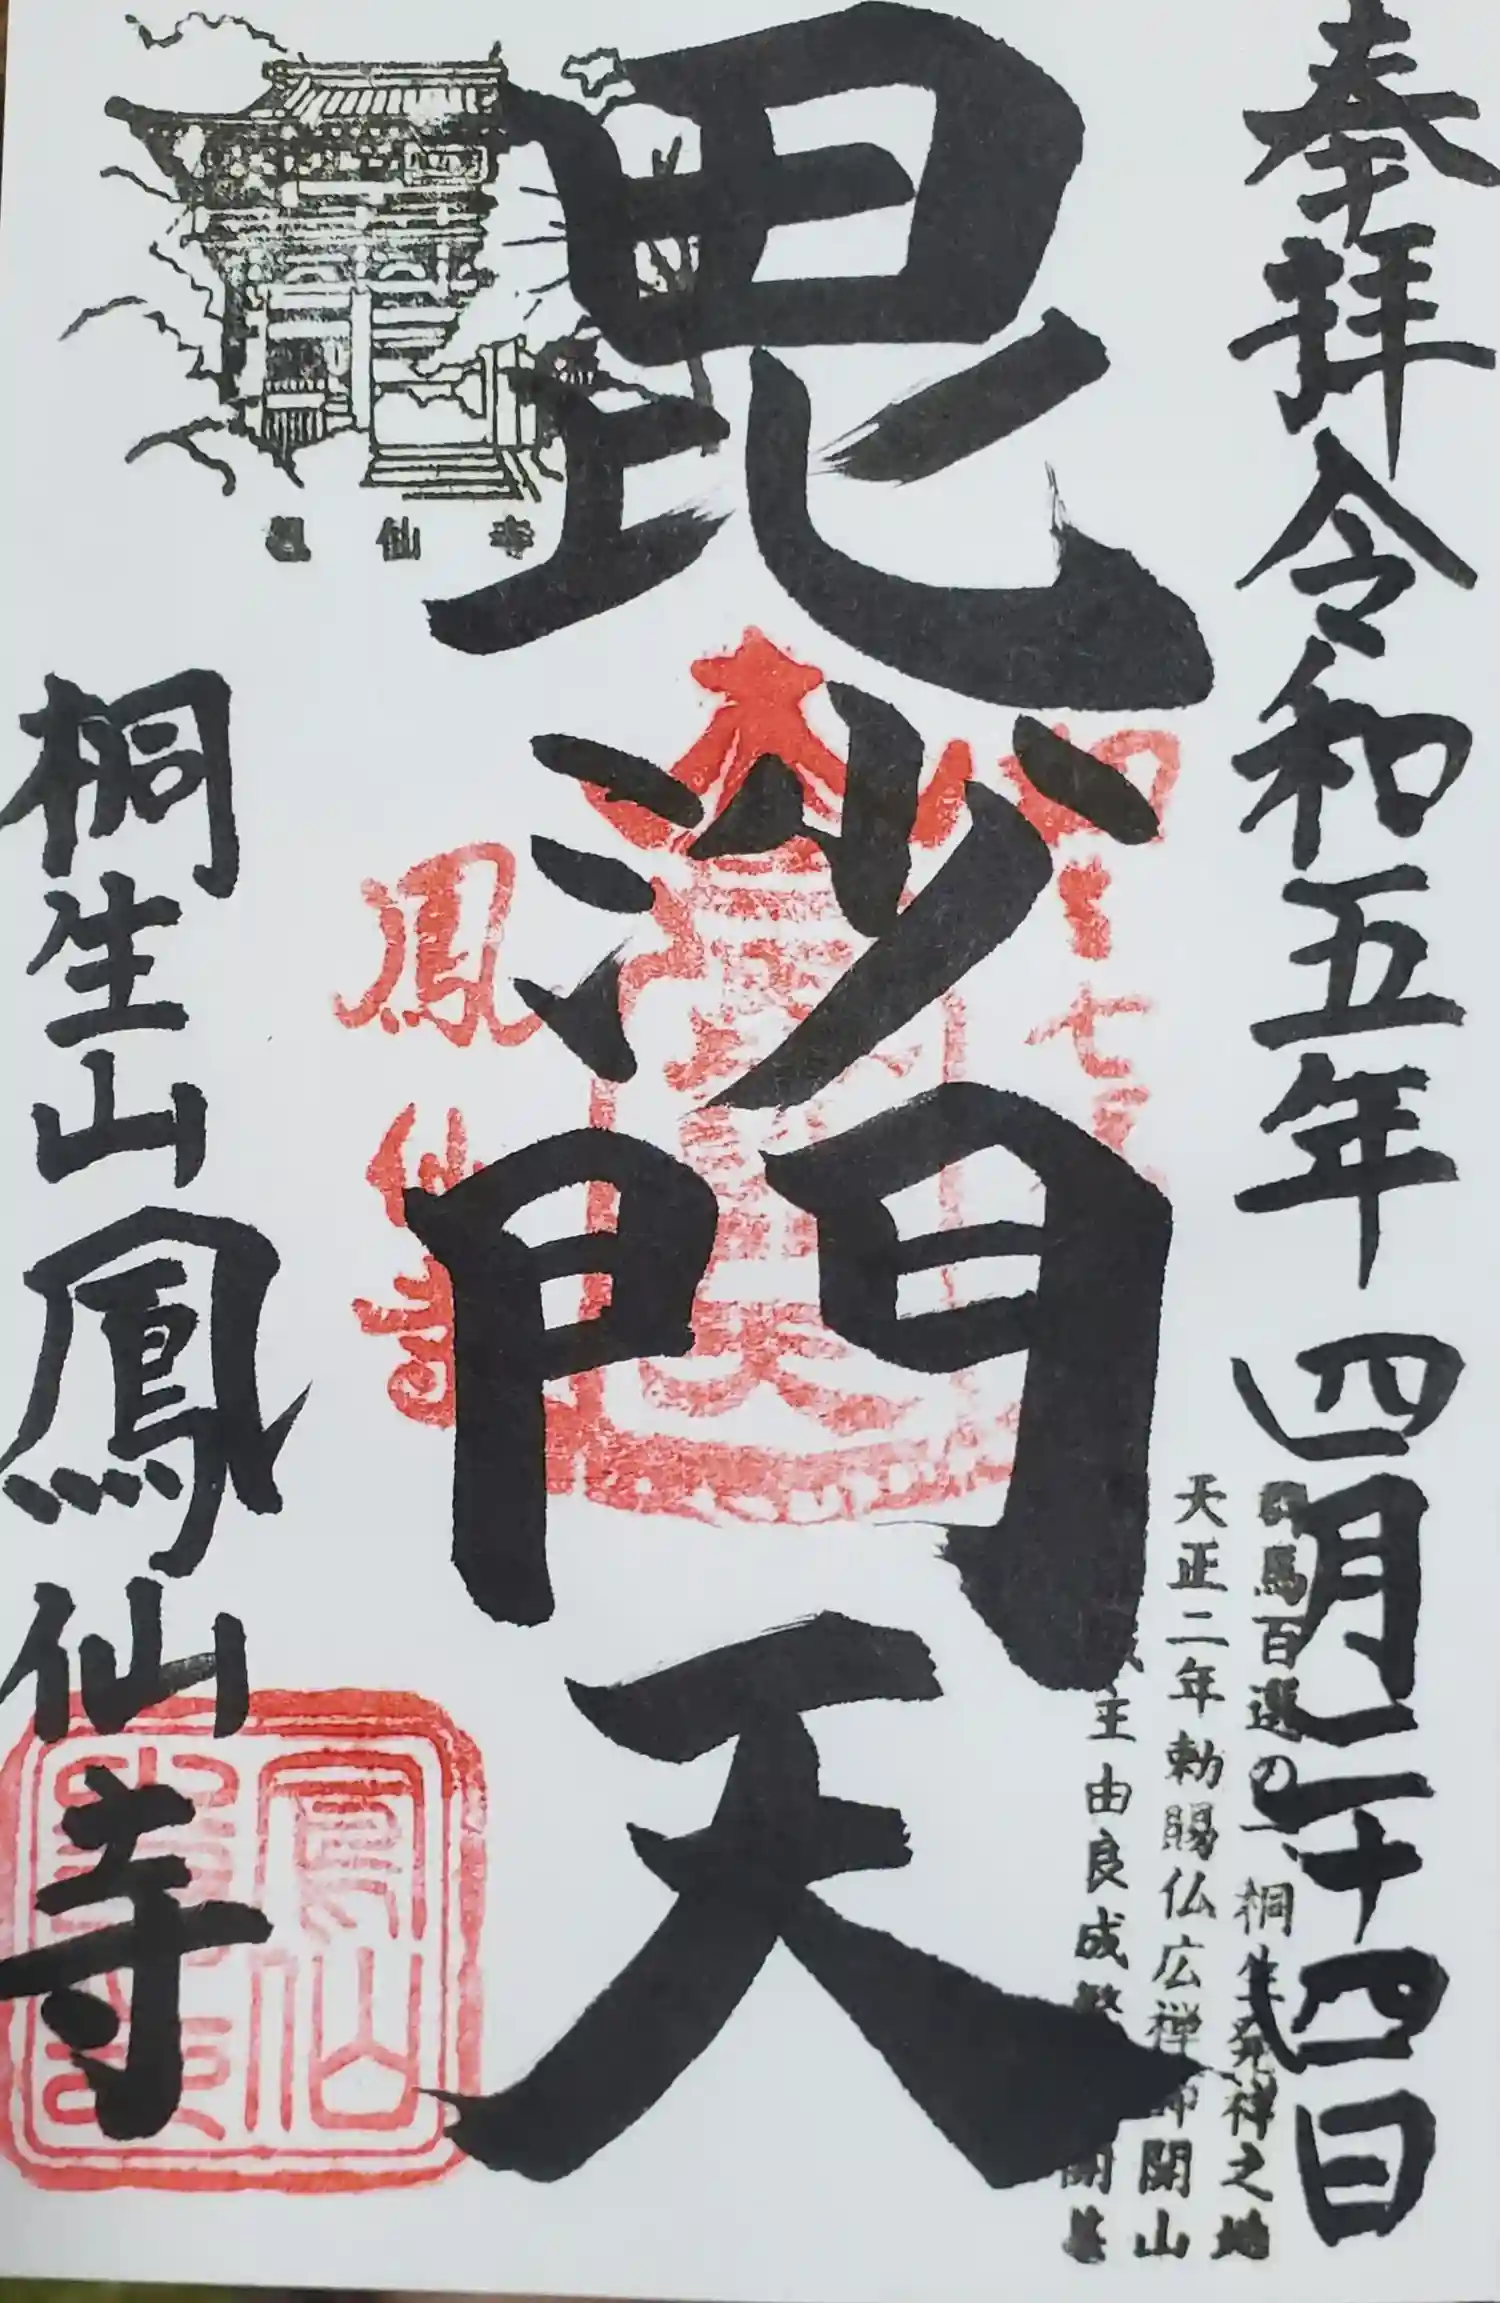 奉拝 令和五年 四月二十四日
群馬百選の一、桐生発祥之地
天正二年勅賜仏広禅師開山
主由良成繁 開基
毘沙門天
鳳仙寺
鳳仙寺
桐生山鳳仙寺
鳳仙